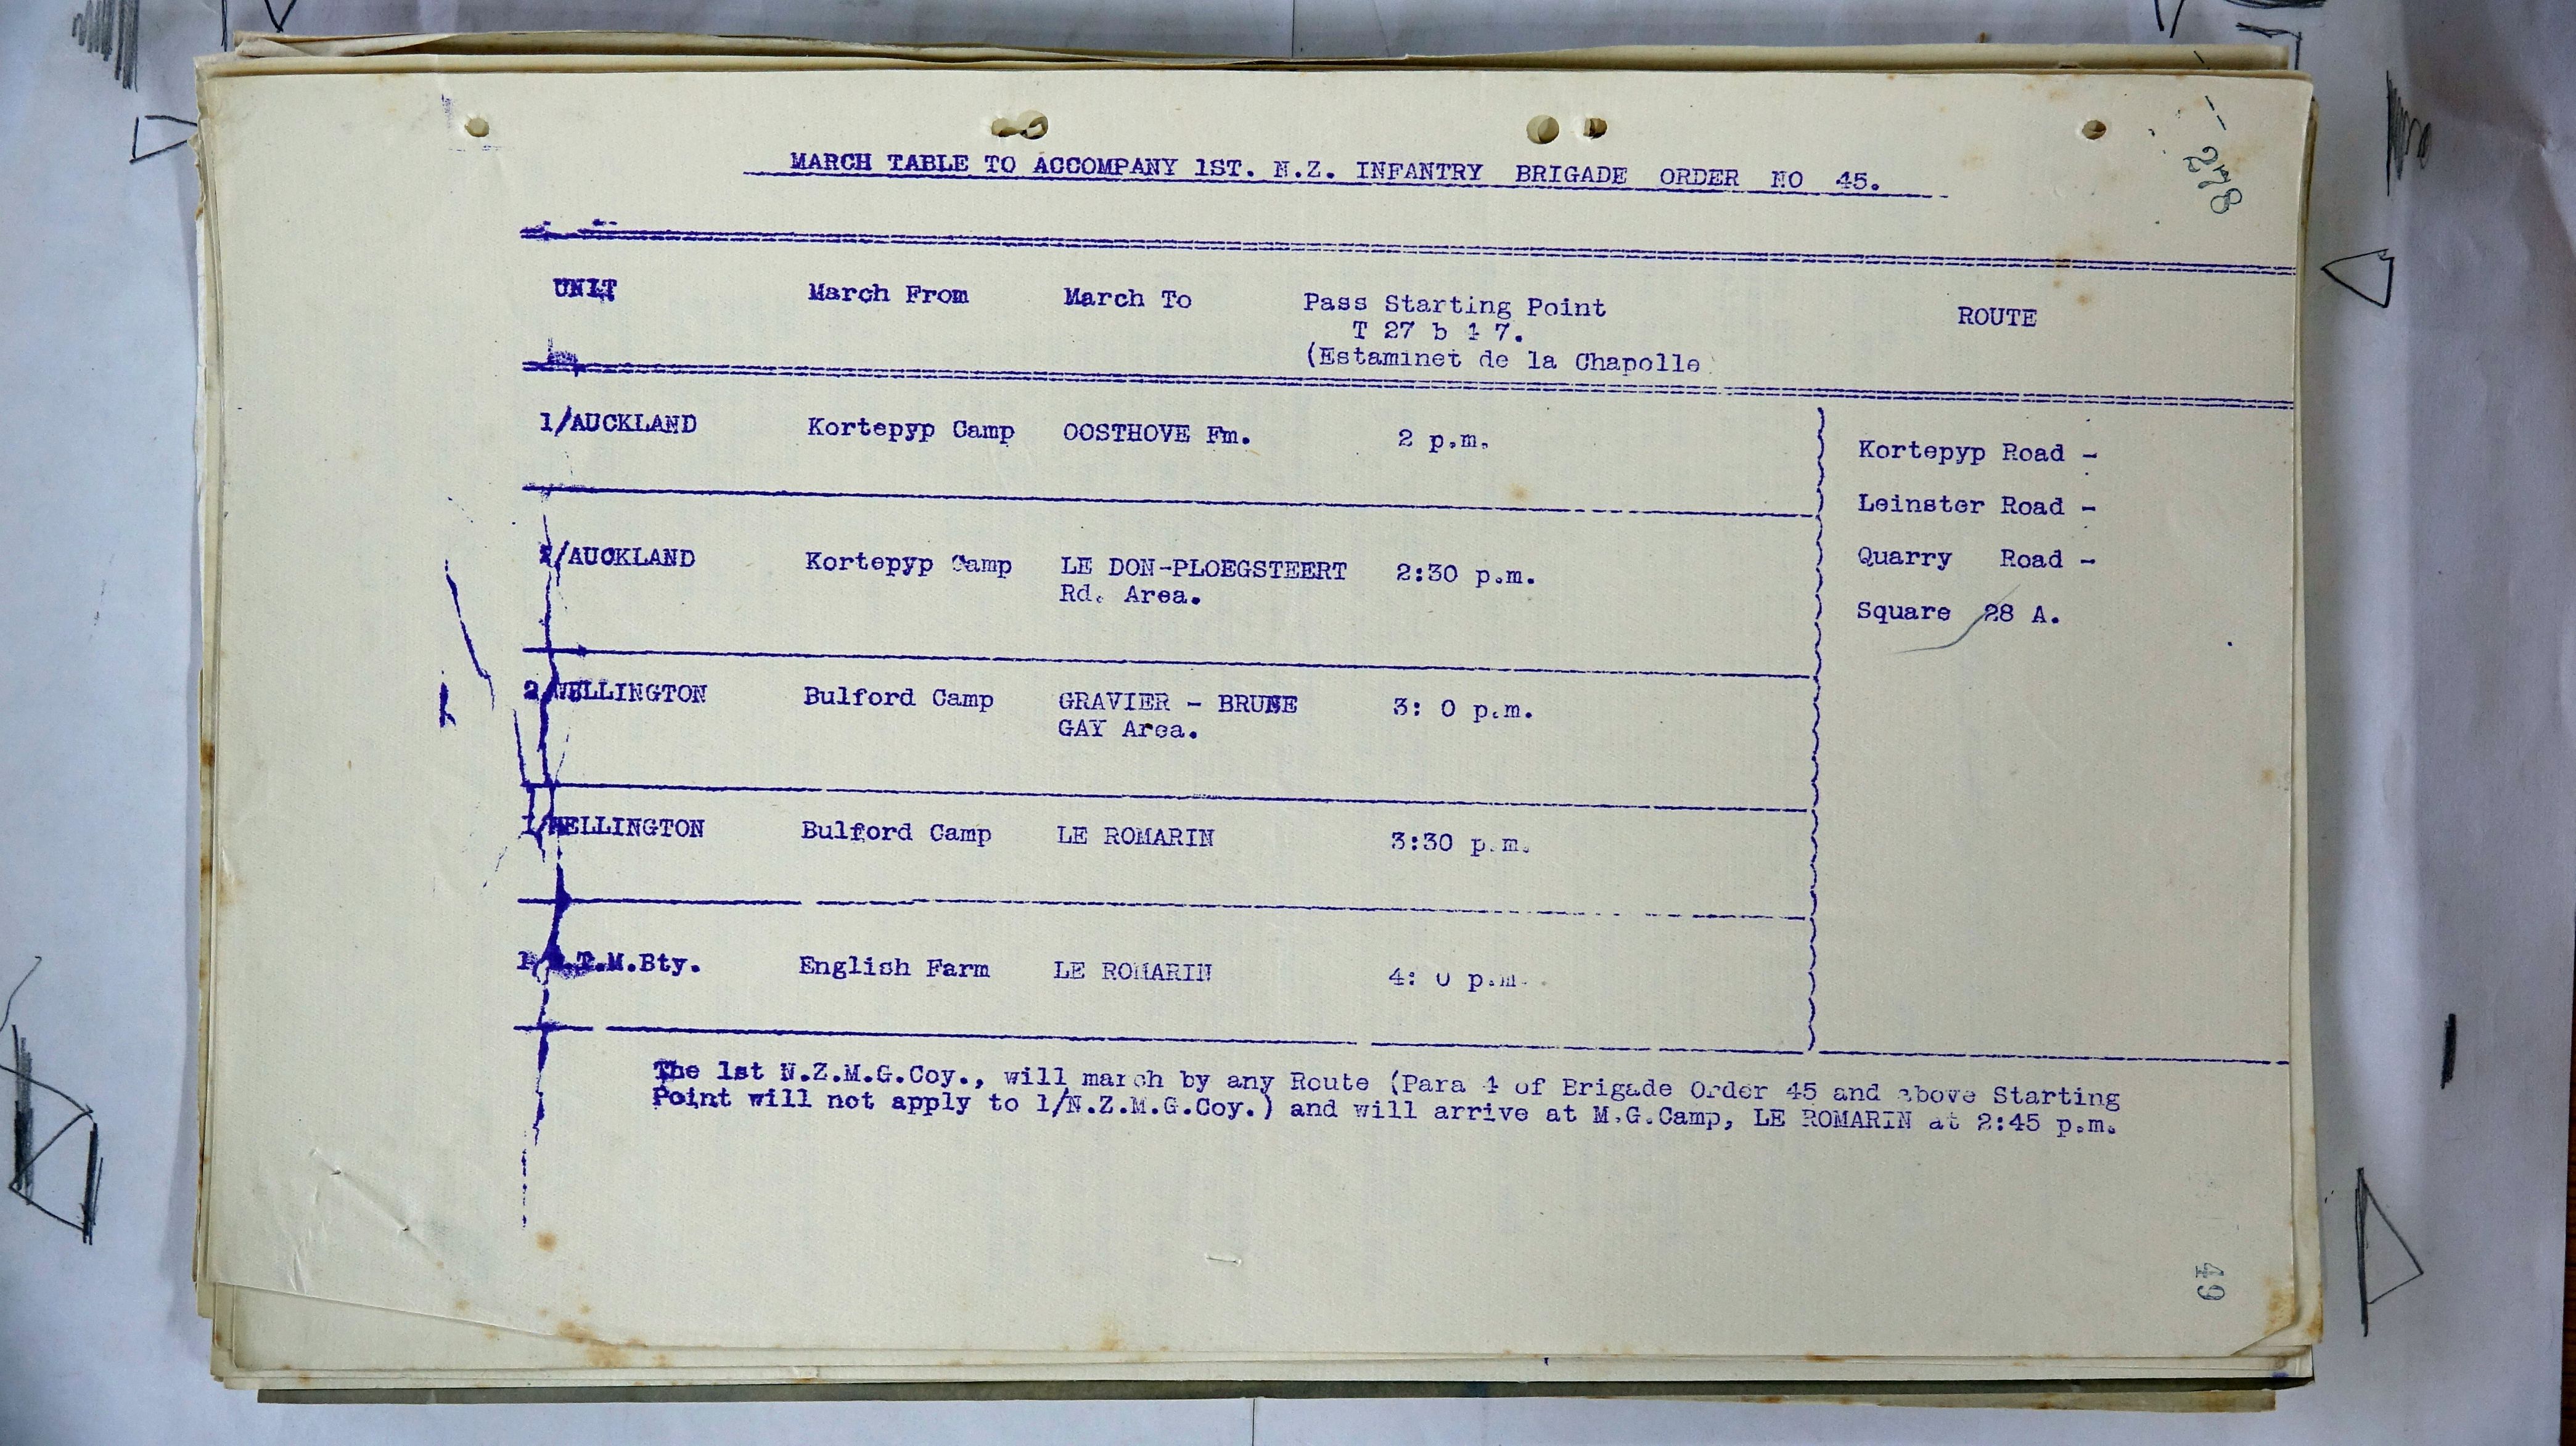 278
MARCH TABLE TO ACCOMPANY 1ST. N.Z. INFANTRY BRIGADE ORDER NO 45.
UNIT March From March To Pass Starting Point ROUTE
T 27 b 4 7.
(Estaminet de la Chapelle
1/AUCKLAND Kortepyp Camp OOSTHOVE Fm. 2 p.m. Kortepyp Road -
Leinster Road -
/AUCKLAND Kortepyp Camp LE DON-PLOEGSTEERT 2:30 p.m. Quarry Road -
Rd. Area. Square 28 A.
2/WELLINGTON Bulford Camp GRAVIER - BRUNE 3: 0 p.m.
GAY Area.
1/WELLINGTON Bulford Camp LE ROMARIN 3:30 p.m.
T.M.Bty. English Farm LE ROMARIN 4: 0 p.m.
The 1st N.Z.M.G.Coy., will march by any Route (Para 4 of Brigade Order 45 and above Starting
Point will not apply to 1/N.Z.M.G.Coy.) and will arrive at M.G.Camp, LE ROMARIN at 2:45 p.m.
49